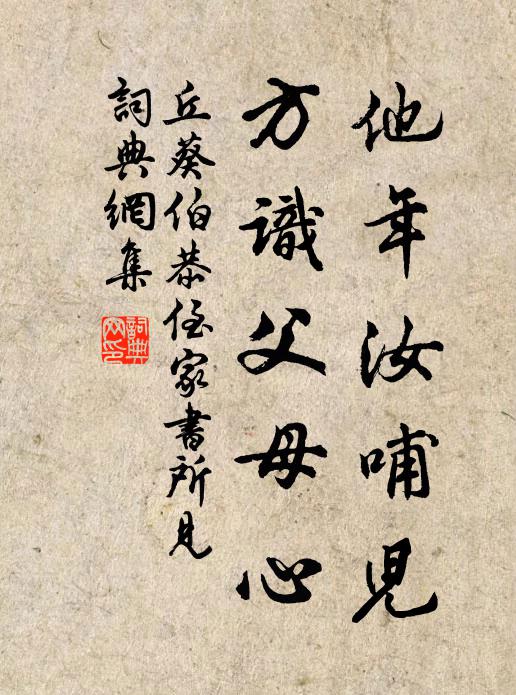 他年汝哺児
方識父母心
丘葵伯恭侄家書所見
詞典網集
詞典
网印